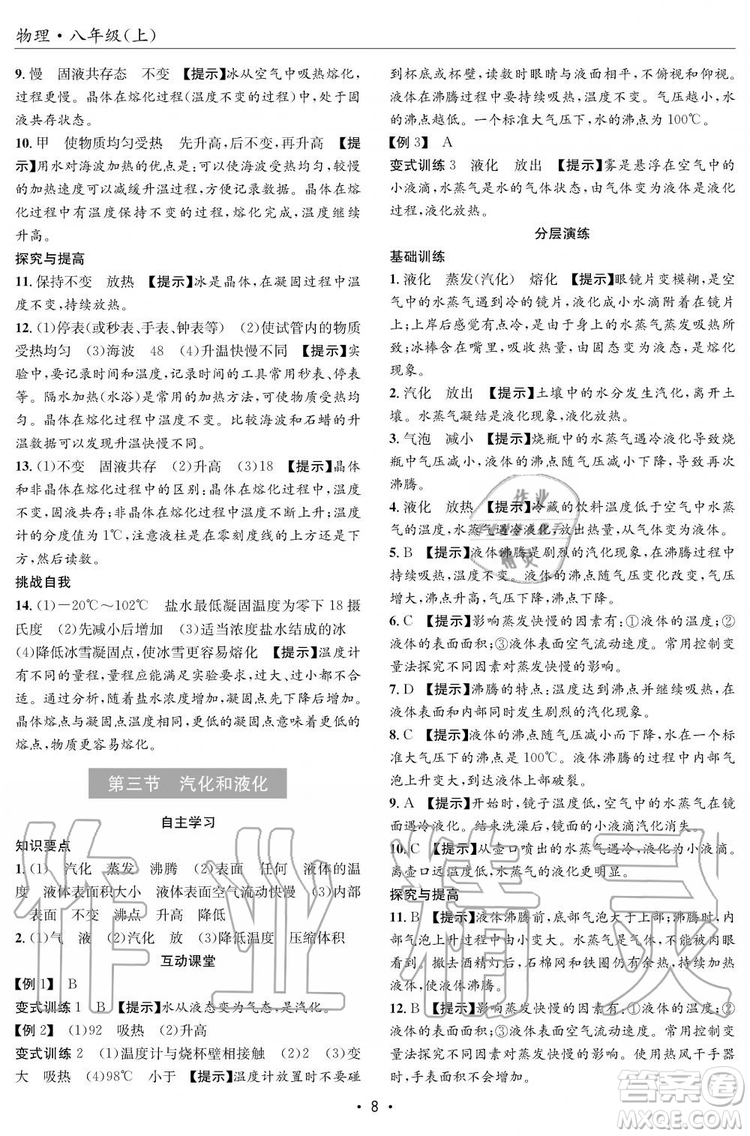 物理·八年级(上)
9. 慢　固液共存态　不变　【提示】冰从空气中吸热熔化，
过程更慢。晶体在熔化过程(温度不变的过程)中处于固
液共存状态。
10. 甲　使物质均匀受热　先升高，后不变，再升高　【提
示】用水对海波加热的优点是：可以均匀受热，较慢
的加热速度可以减缓升温过程，方便观察。晶体在熔
化过程中有温度保持不变的过程，熔化完成，温度继续
升高。
探究与提高
11. 保持不变　放热　【提示】冰是晶体，在凝固过程中温度
不变，持续放热。
12. (1)停表(或秒表、手表、钟表等)　(2)使试管内的物质
受热均匀　(3)海波　48　(4)升温快慢不同　【提示】实
验中，要记录时间和温度，记录时间的工具常用秒表、停表
等。隔水加热(水浴)是常用的加热方法，可以使受热均
匀。晶体在熔化过程中温度不变。比较海波和石蜡的升
温数据可以发现升温快慢不同。
13. (1)不变　固液共存　(2)升高　(3)18　【提示】晶体
和非晶体在熔化过程中的区别：晶体熔化过程中，温度
不变，固液共存，非晶体熔化过程中，温度升高。温度
计的分度值为1℃，注意液柱是在零刻度线的上方还是
下方，然后读数。
挑战自我
14. (1)－20℃～102℃　盐水最低凝固温度为零下18摄
氏度　(2)先减小后增加　(3)适当浓度盐水结成的冰
(4)降低冰雪凝固点，使冰雪更容易熔化　【提示】温度计
的量程，应根据待测温度范围选择，过大过小都不合适。
分析数据发现，凝固点随着盐水浓度增加先减小后增加。
晶体熔点与同种物质的凝固点相同，降低凝固点即降低
熔点，物质更容易熔化。
第三节　汽化和液化
自主学习
知识要点
1. (1)液　汽化　蒸发　沸腾　(2)表面　任何　液体的温
度　液体表面积大小　液体表面空气流动快慢　(3)内部
表面　不变　沸点　升高　降低
2. (1)气　液　(2)汽化　放　(3)降低温度　压缩体积
互动课堂
【例1】　B
变式训练1　BD　【提示】水从液态变为气态，是汽化。
【例2】　(1)92　吸热　(2)升高
变式训练2　(1)温度计与烧杯壁相接触　(2)不变　变
大　吸热　(3)98℃　小于　【提示】温度计放置时不要碰
到杯底或杯壁，读数时眼睛与液面相平，不能俯视和仰视。
液体在沸腾过程中要持续吸热，温度不变。气压越低，水
的沸点越低。一个标准大气压下，水的沸点为100℃。
【例3】　A
变式训练3　液化　放出　【提示】雾是悬浮在空气中的
小液滴，水蒸气是水的气体状态，由气体变为液体是液化
过程，液化放热。
分层演练
基础训练
1. 液化　蒸发(汽化)　熔化　【提示】眼镜片变模糊，是空
气中的水蒸气遇到冷的镜片，液化成小水滴附着在镜片
上；上岸后感觉有点冷，是由于身上的水蒸气蒸发吸热所
致；冰棒含在嘴里变成水，由固态变为液态，是熔化
现象。
2. 汽化　放出　【提示】土壤中的水分发生汽化，离开土
壤。水蒸气凝结是液化现象，液化放热。
3. 气泡　减小　【提示】烧瓶中的水蒸气遇冷液化导致烧
瓶中气压减小。液体的沸点随压强的减小而减小，导致
液体再次沸腾。
4. 液化　放热　【提示】冷藏的饮料温度低于空气中水蒸
气的温度，水蒸气遇冷液化，液化放热。
5. B　【提示】液体沸腾是剧烈的汽化现象，在液体表面
和内部同时发生。液体的沸点随气压变化改变，气压升
高，沸点升高，气压下降，沸点下降。
6. C　【提示】影响蒸发快慢的因素有：①液体的温度；②液
体的表面面积；③液体表面空气流动速度。常用控制变
量法探究不同因素对蒸发快慢的影响。
7. D　【提示】沸腾的特点：温度达到沸点，温度不变，在
液体表面和内部同时发生的剧烈的汽化现象。
8. C　【提示】液体的沸点随气压减小而减小，水在一个标
准大气压下的沸点是100℃，液体沸腾时，气泡不断上升
变大，到液体表面上破裂。
9. A　【提示】开始时，镜子温度低，空气中的水蒸气在镜
面遇冷液化。结束洗澡后，镜面的小液滴汽化消失。
10. C　【提示】从壶口喷出的水蒸气在遇冷时发生液化。
离壶口远处温度更低，水蒸气的液化更明显。
探究与提高
11. B　【提示】液体沸腾前，底部气泡大，沸腾时，内部产
生大量气泡，由小变大。水蒸气是气态，不能被肉眼
看到。撤去酒精灯后，石棉网和铁圈仍有余热，可以使
液体继续沸腾。
12. B　【提示】影响蒸发快慢的因素有：①液体的温度；②液
体的表面面积；③液体表面空气流动速度。温度越高，
表面积越大，空气流动越快，蒸发越快。使用热风干手器
时，使液体表面空气流动加快，温度升高，使水分迅速
·8·
作业
精灵
作业精灵
答案圈
MXQE.COM